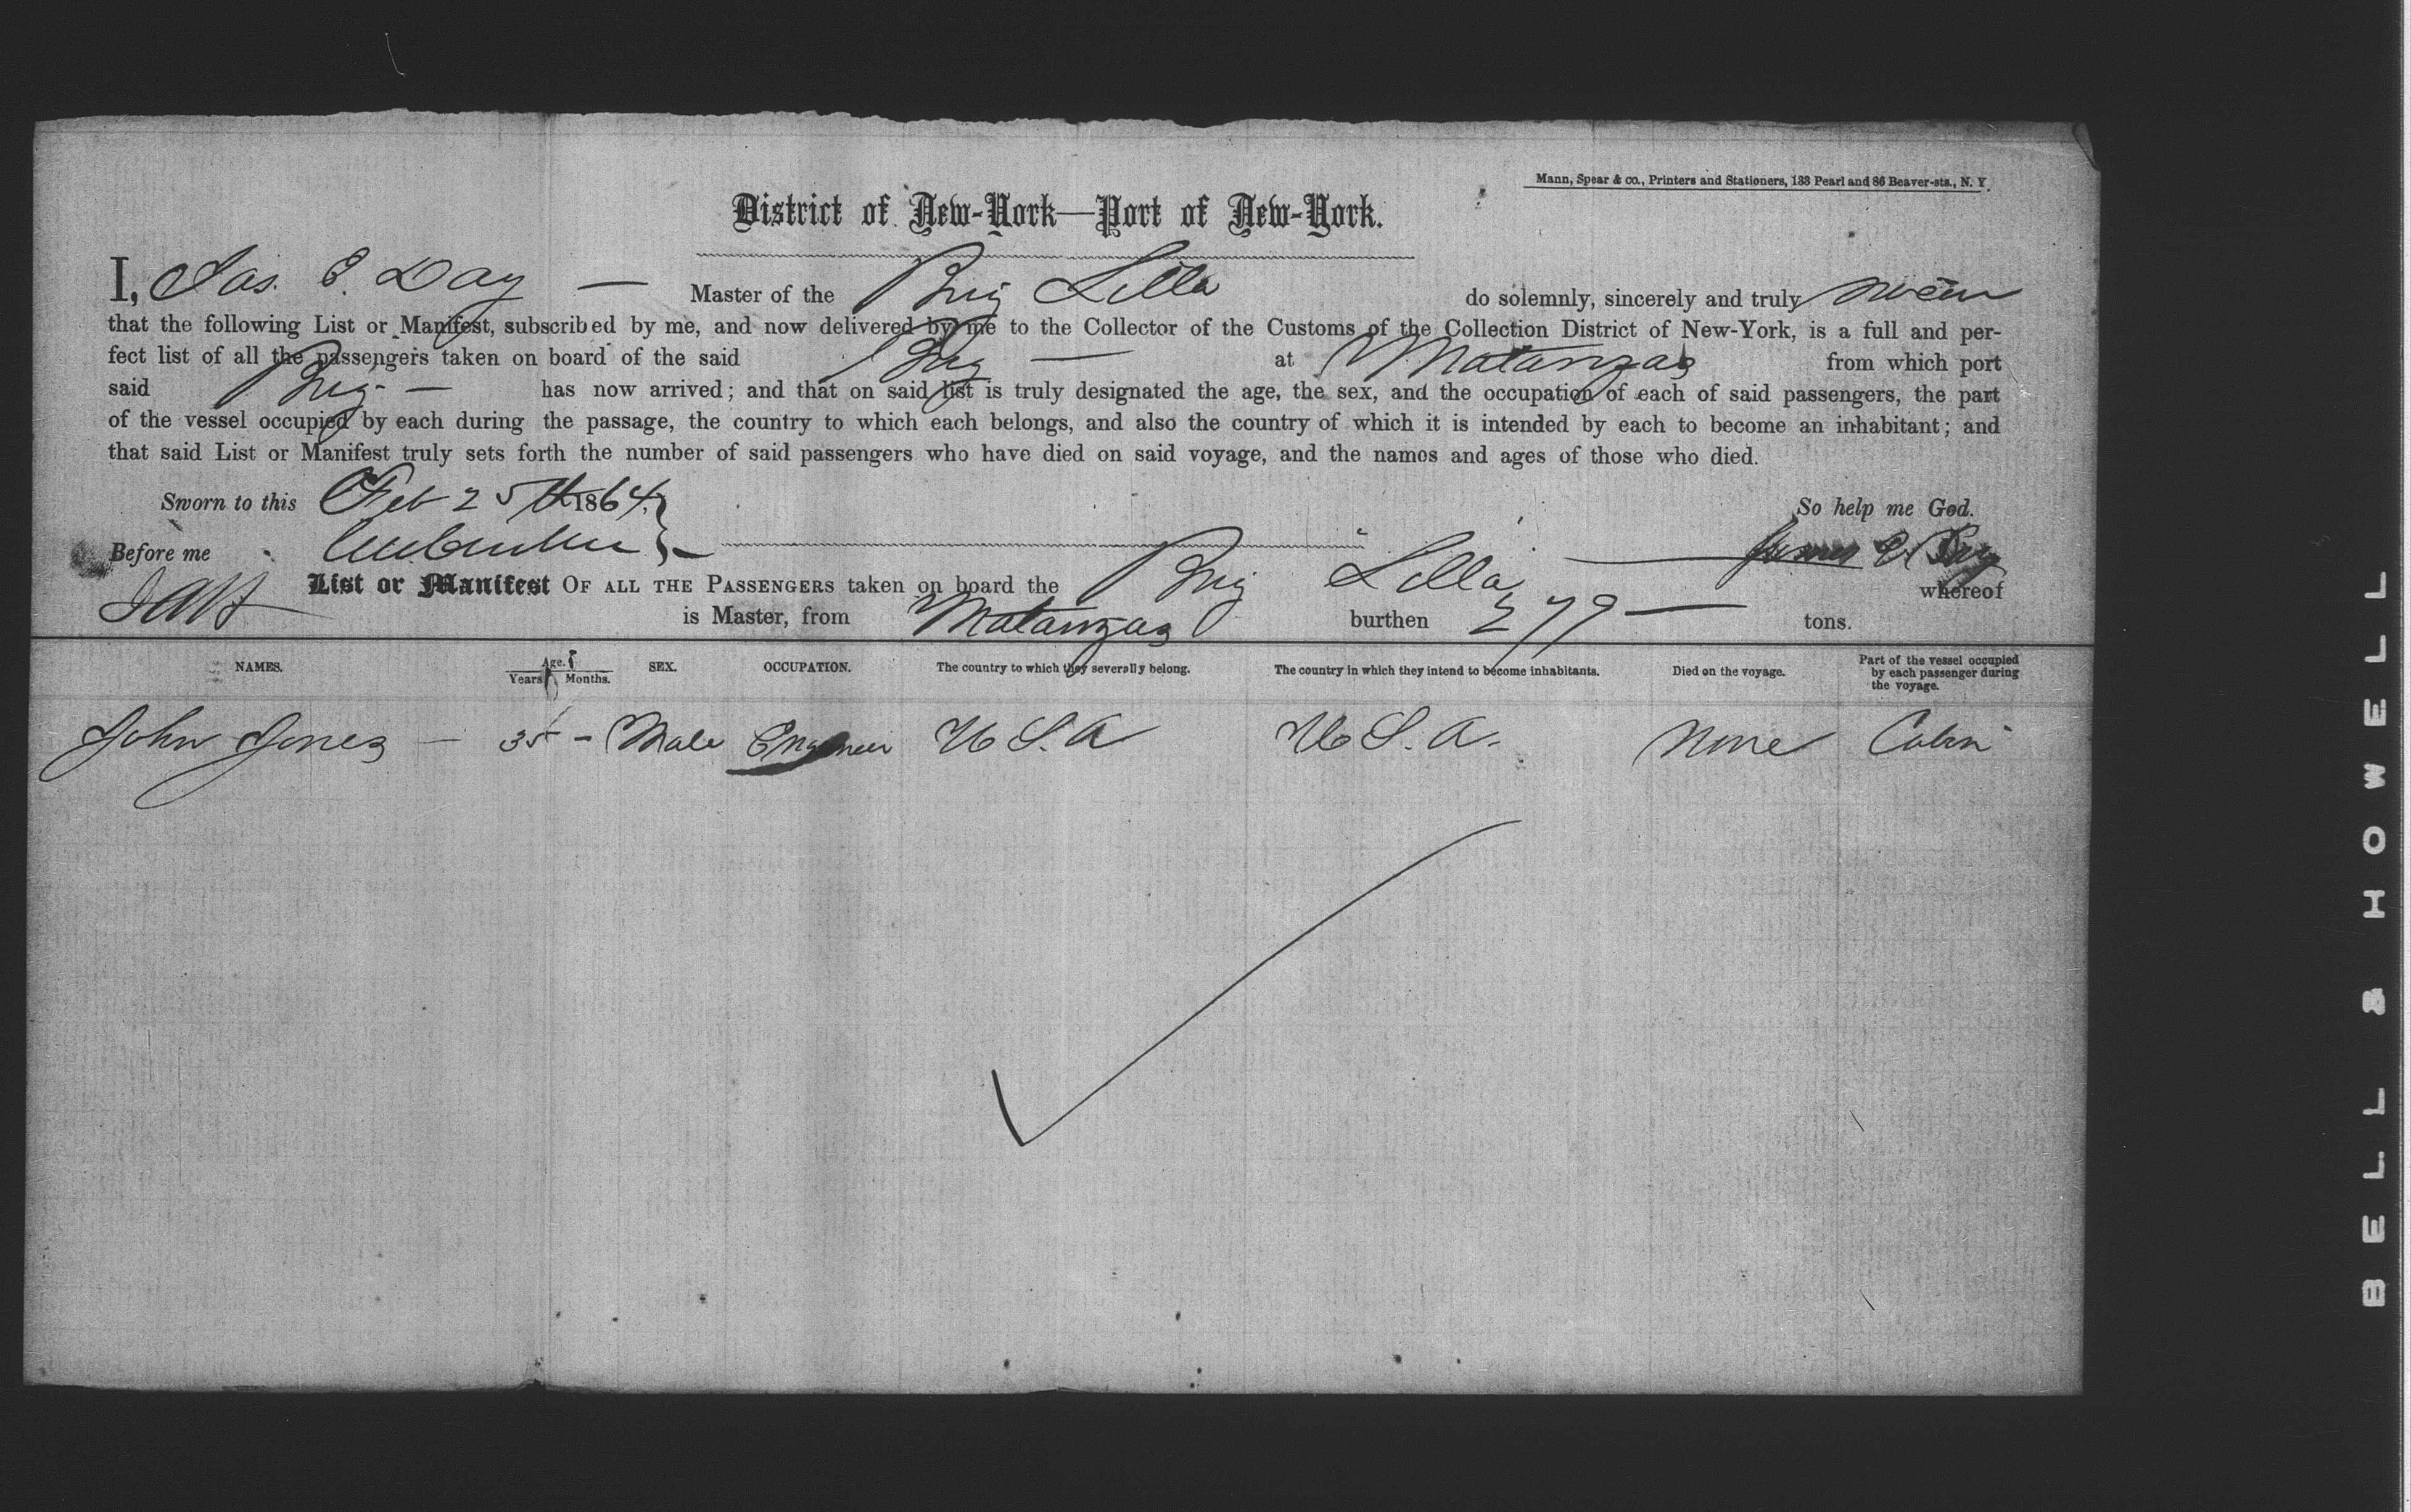 Mann, Spear & co., Printers and Stationers, 133 Pearl and 86 Beaver-sts., N. Y.
District of New-York—Port of New-York.
I, Jas. E. Day — Master of the Brig Lilla do solemnly, sincerely and truly swear
that the following List or Manifest, subscribed by me, and now delivered by me to the Collector of the Customs of the Collection District of New-York, is a full and per-
fect list of all the passengers taken on board of the said Brig — at Matanzas from which port
said Brig — has now arrived; and that on said list is truly designated the age, the sex, and the occupation of each of said passengers, the part
of the vessel occupied by each during the passage, the country to which each belongs, and also the country of which it is intended by each to become an inhabitant; and
that said List or Manifest truly sets forth the number of said passengers who have died on said voyage, and the names and ages of those who died.
Sworn to this Feb 25th 1864. So help me God.
Before me James E Day
List or Manifest OF ALL THE PASSENGERS taken on board the Brig Lilla whereof
is Master, from Matanzas burthen 279 — tons.
NAMES. Age. Years Months. SEX. OCCUPATION. The country to which they severally belong. The country in which they intend to become inhabitants. Died on the voyage. Part of the vessel occupied by each passenger during the voyage.
John Jones — 35 - Male Engineer U S. A U S. A. None Cabin
BELL & HOWELL